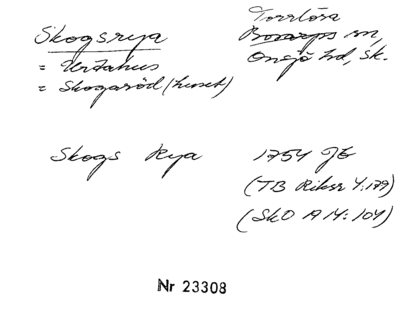 Skogsrya
= Urtahus
= Skogaröd (huset)
Torrlösa
Bosarps sn,
Onsjö hd, Sk.
Skogs Rya 1754 JE
(TB Riksr 4:179)
(SkO A 14: 104)
Nr 23308